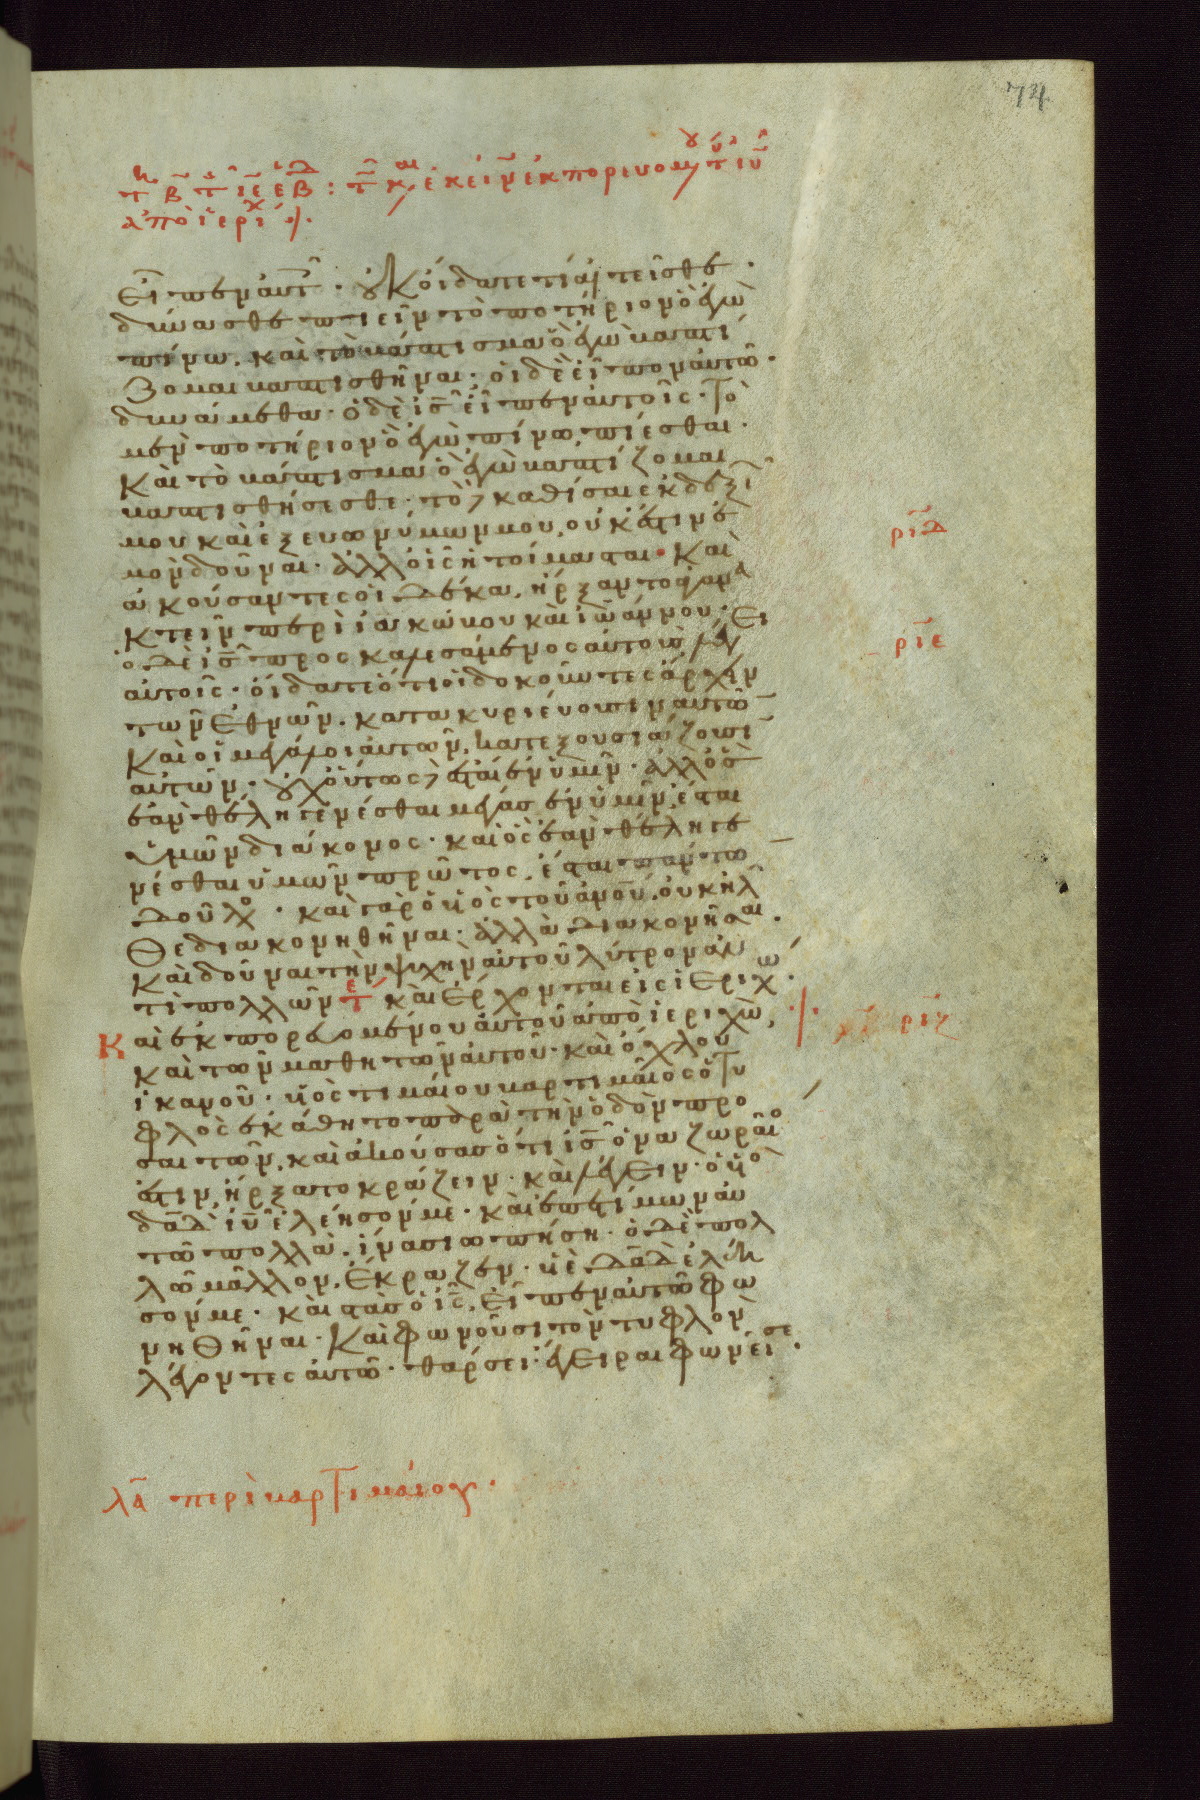 74
τῇ β̄ τ ιε ε̄β̄ : τ κ, ἐκείν ἐκπορευομ τ ιῦ
ἀπὸ ἱεριχ
εἶπεν αὐτ · οὐκ οἴδατε τί αἰτεῖσθε ·
δύνασθε πιεῖν τὸ ποτήριον ὃ ἐγὼ
πίνω. καὶ τὸ βάπτισμα ὃ ἐγὼ βαπτί
ζομαι βαπτισθῆναι · οἱ δὲ εἶπον αὐτῶ ·
δυνάμεθα · ὁ δὲ ις εἶπεν αὐτοῖς · τὸ
μὲν ποτήριον ὃ ἐγὼ πίνω, πίεσθαι ·
καὶ τὸ βάπτισμα ὃ ἐγὼ βαπτίζομαι
βαπτισθήσεσθε · τὸ δὲ καθίσαι ἐκ δεξι
μου καὶ ἐξ εὐωνύμων μου, οὐκ ἔστιν ἐ
μὸν δοῦναι · ἀλλ οἷς ἡτοίμασται · καὶ
ἀκούσαντες οἱ δέκα, ἤρξαντο ἀγανα
κτεῖν περὶ ἰακώβου καὶ ἰωάννου ·
ὁ δὲ ις προσκαλεσάμενος αὐτοὺς λέγει
αὐτοῖς · οἴδατε ὅτι οἱ δοκοῦντες ἄρχειν
τῶν ἐθνῶν. κατακυριεύουσιν αὐτῶ
καὶ οἱ μεγάλοι αὐτῶν, κατεξουσιάζουσι
αὐτῶν · οὐχ οὕτως δὲ ἔσται ἐν ὑμῖν · ἀλλ ὃς
ἐὰν θέλῃ γενέσθαι μέγας ἐν ὑμῖν, ἔσται
ὑμῶν διάκονος · καὶ ὃς ἐὰν θέλῃ γε
νέσθαι ὑμῶν πρῶτος, ἔσται πάντω
δοῦλο · καὶ γὰρ ὁ υἱὸς τοῦ ανου, οὐκ ἦλ
θε διακονηθῆναι · ἀλλὰ διακονῆσαι ·
καὶ δοῦναι τὴν ψυχὴν αὐτοῦ λύτρον ἀν
τὶ πολλῶν τε καὶ ἔρχονται εἰς ἱεριχώ ·
καὶ ἐκπορευομένου αὐτοῦ ἀπὸ ἱεριχὼ,
καὶ τῶν μαθητῶν αὐτοῦ · καὶ ὄχλου
ἱκανοῦ · υἱὸς τιμαίου βαρτιμαῖος ὁ τυ
φλὸς ἐκάθητο παρὰ τὴν ὁδὸν προ
σαιτῶν. καὶ ἀκούσας ὅτι ις ὁ ναζωραῖο
ἔστιν, ἤρξατο κράζειν · καὶ λέγειν · ὁ υἱὸ
δαδ ιυ ἐλέησόν με · καὶ ἐπετίμων αὐ
τῶ πολλὰ. ἵνα σιωπήσῃ · ὁ δὲ πολ
λῶ μᾶλλον, ἔκραζεν · υἱὲ δαδ ἐλέη
σόν με · καὶ στὰς ὁ ις, εἶπεν αὐτῶ φω
νηθῆναι · καὶ φωνοῦσι τὸν τυφλὸν
λέγοντες αὐτῶ · θάρσει · ἔγειραι φωνεῖ σε ·
ριδ
ριε
ριϛ
λα περὶ βαρτιμαίου ·